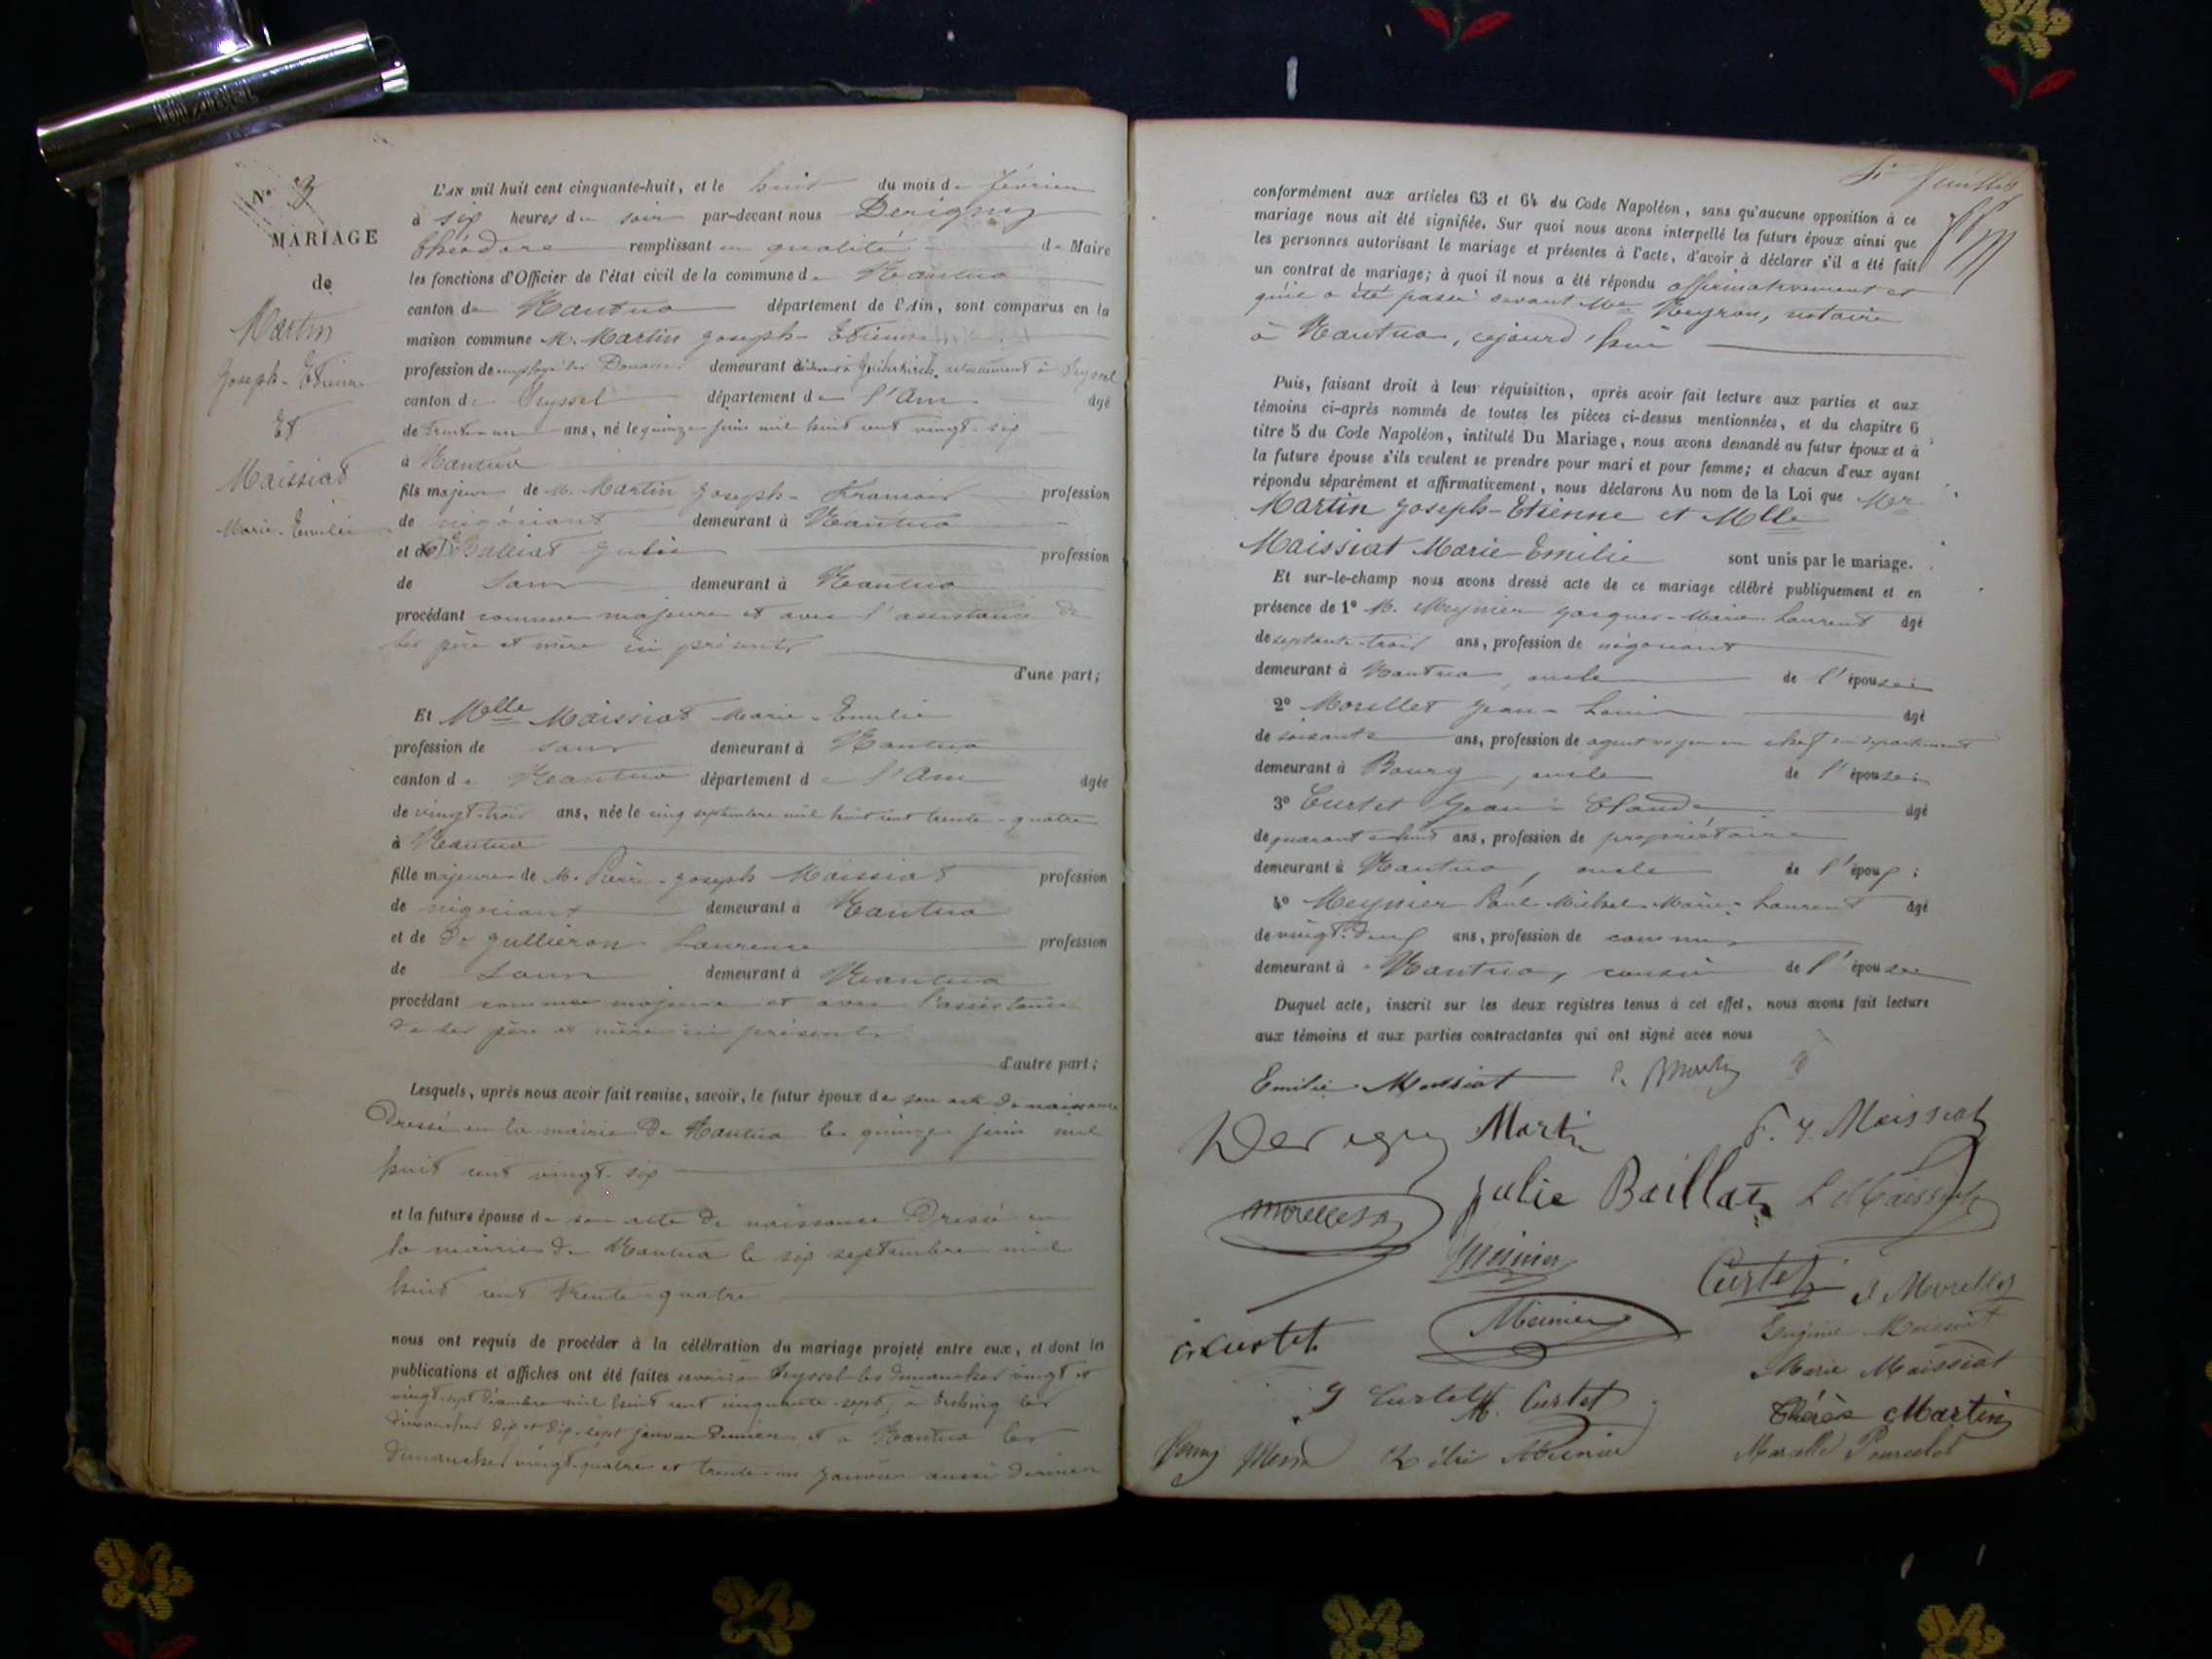 N° 3
MARIAGE
de
Martin
Joseph-Etienne
Et
Maissiat
Marie-Emilie
L'AN mil huit cent cinquante-huit, et le huit du mois de février
à six heures du soir par-devant nous Derigny
théodore remplissant en qualité de Maire
les fonctions d'Officier de l'état civil de la commune de Nantua
canton de Nantua département de l'Ain, sont comparus en la
maison commune M. Martin Joseph-Etienne
profession de employé des Douanes demeurant actuellement à Seyssel
canton de Seyssel département de l'Ain âgé
de trente-un ans, né le quinze juin mil huit cent vingt-six
à Nantua
fils majeur de M. Martin Joseph-François profession
de négociant demeurant à Nantua
et de De Balliat Julie profession
de sans demeurant à Nantua
procédant comme majeur et avec l'assistance de
ses père et mère ici présents
d'une part;
Et Melle Maissiat Marie-Emilie
profession de sans demeurant à Nantua
canton de Nantua département de l'Ain âgée
de vingt-trois ans, née le cinq septembre mil huit cent trente-quatre
à Nantua
fille majeure de M. Pierre-Joseph Maissiat profession
de négociant demeurant à Nantua
et de De Jullieron Laurence profession
de sans demeurant à Nantua
procédant comme majeure et avec l'assistance
de ses père et mère ici présents
d'autre part;
Lesquels, après nous avoir fait remise, savoir, le futur époux de son acte de naissance
Dressé en la mairie de Nantua le quinze juin mil
huit cent vingt-six
et la future épouse de son acte de naissance Dressé en
la mairie de Nantua le six septembre mil
huit cent trente-quatre
nous ont requis de procéder à la célébration du mariage projeté entre eux, et dont les
publications et affiches ont été faites savoir à Seyssel les dimanches vingt et
vingt-sept décembre mil huit cent cinquante-sept, à les
dimanches dix et dix-sept janvier dernier et à Nantua les
dimanches vingt-quatre et trente-un janvier aussi dernier
conformément aux articles 63 et 64 du Code Napoléon, sans qu'aucune opposition à ce
mariage nous ait été signifiée. Sur quoi nous avons interpellé les futurs époux ainsi que
les personnes autorisant le mariage et présentes à l'acte, d'avoir à déclarer s'il a été fait
un contrat de mariage; à quoi il nous a été répondu affirmativement et
qu'il a été passé devant Me Neyron, notaire
à Nantua, cejourd'hui
Puis, faisant droit à leur réquisition, après avoir fait lecture aux parties et aux
témoins ci-après nommés de toutes les pièces ci-dessus mentionnées, et du chapitre 6
titre 5 du Code Napoléon, intitulé Du Mariage, nous avons demandé au futur époux et à
la future épouse s'ils veulent se prendre pour mari et pour femme; et chacun d'eux ayant
répondu séparément et affirmativement, nous déclarons Au nom de la Loi que Mer
Martin Joseph-Etienne et Melle
Maissiat Marie-Emilie sont unis par le mariage.
Et sur-le-champ nous avons dressé acte de ce mariage célébré publiquement et en
présence de 1° M. Meynier Jacques-Marie-Laurent âgé
de septante-trois ans, profession de négociant
demeurant à Nantua, oncle de l'épouse;
2° Morellet Jean-Louis âgé
de soixante ans, profession de agent voyer en chef du département
demeurant à Bourg, oncle de l'épouse;
3° Curtet Jean-Claude âgé
de quarante-huit ans, profession de propriétaire
demeurant à Nantua, oncle de l'époux;
4° Meynier Paul-Michel-Marie-Laurent âgé
de vingt-deux ans, profession de commis
demeurant à Nantua, cousin de l'épouse
Duquel acte, inscrit sur les deux registres tenus à cet effet, nous avons fait lecture
aux témoins et aux parties contractantes qui ont signé avec nous
Emilie Maissiat
Derigny Martin Maissiat
Morellet Julie Baillat L Maissiat
Meinier Curtet Morellet
Curtet Meinier Eugénie Maissiat
Marie Maissiat
J Curtet M. Curtet Thérèse Martin
Marcelle Pourcelot